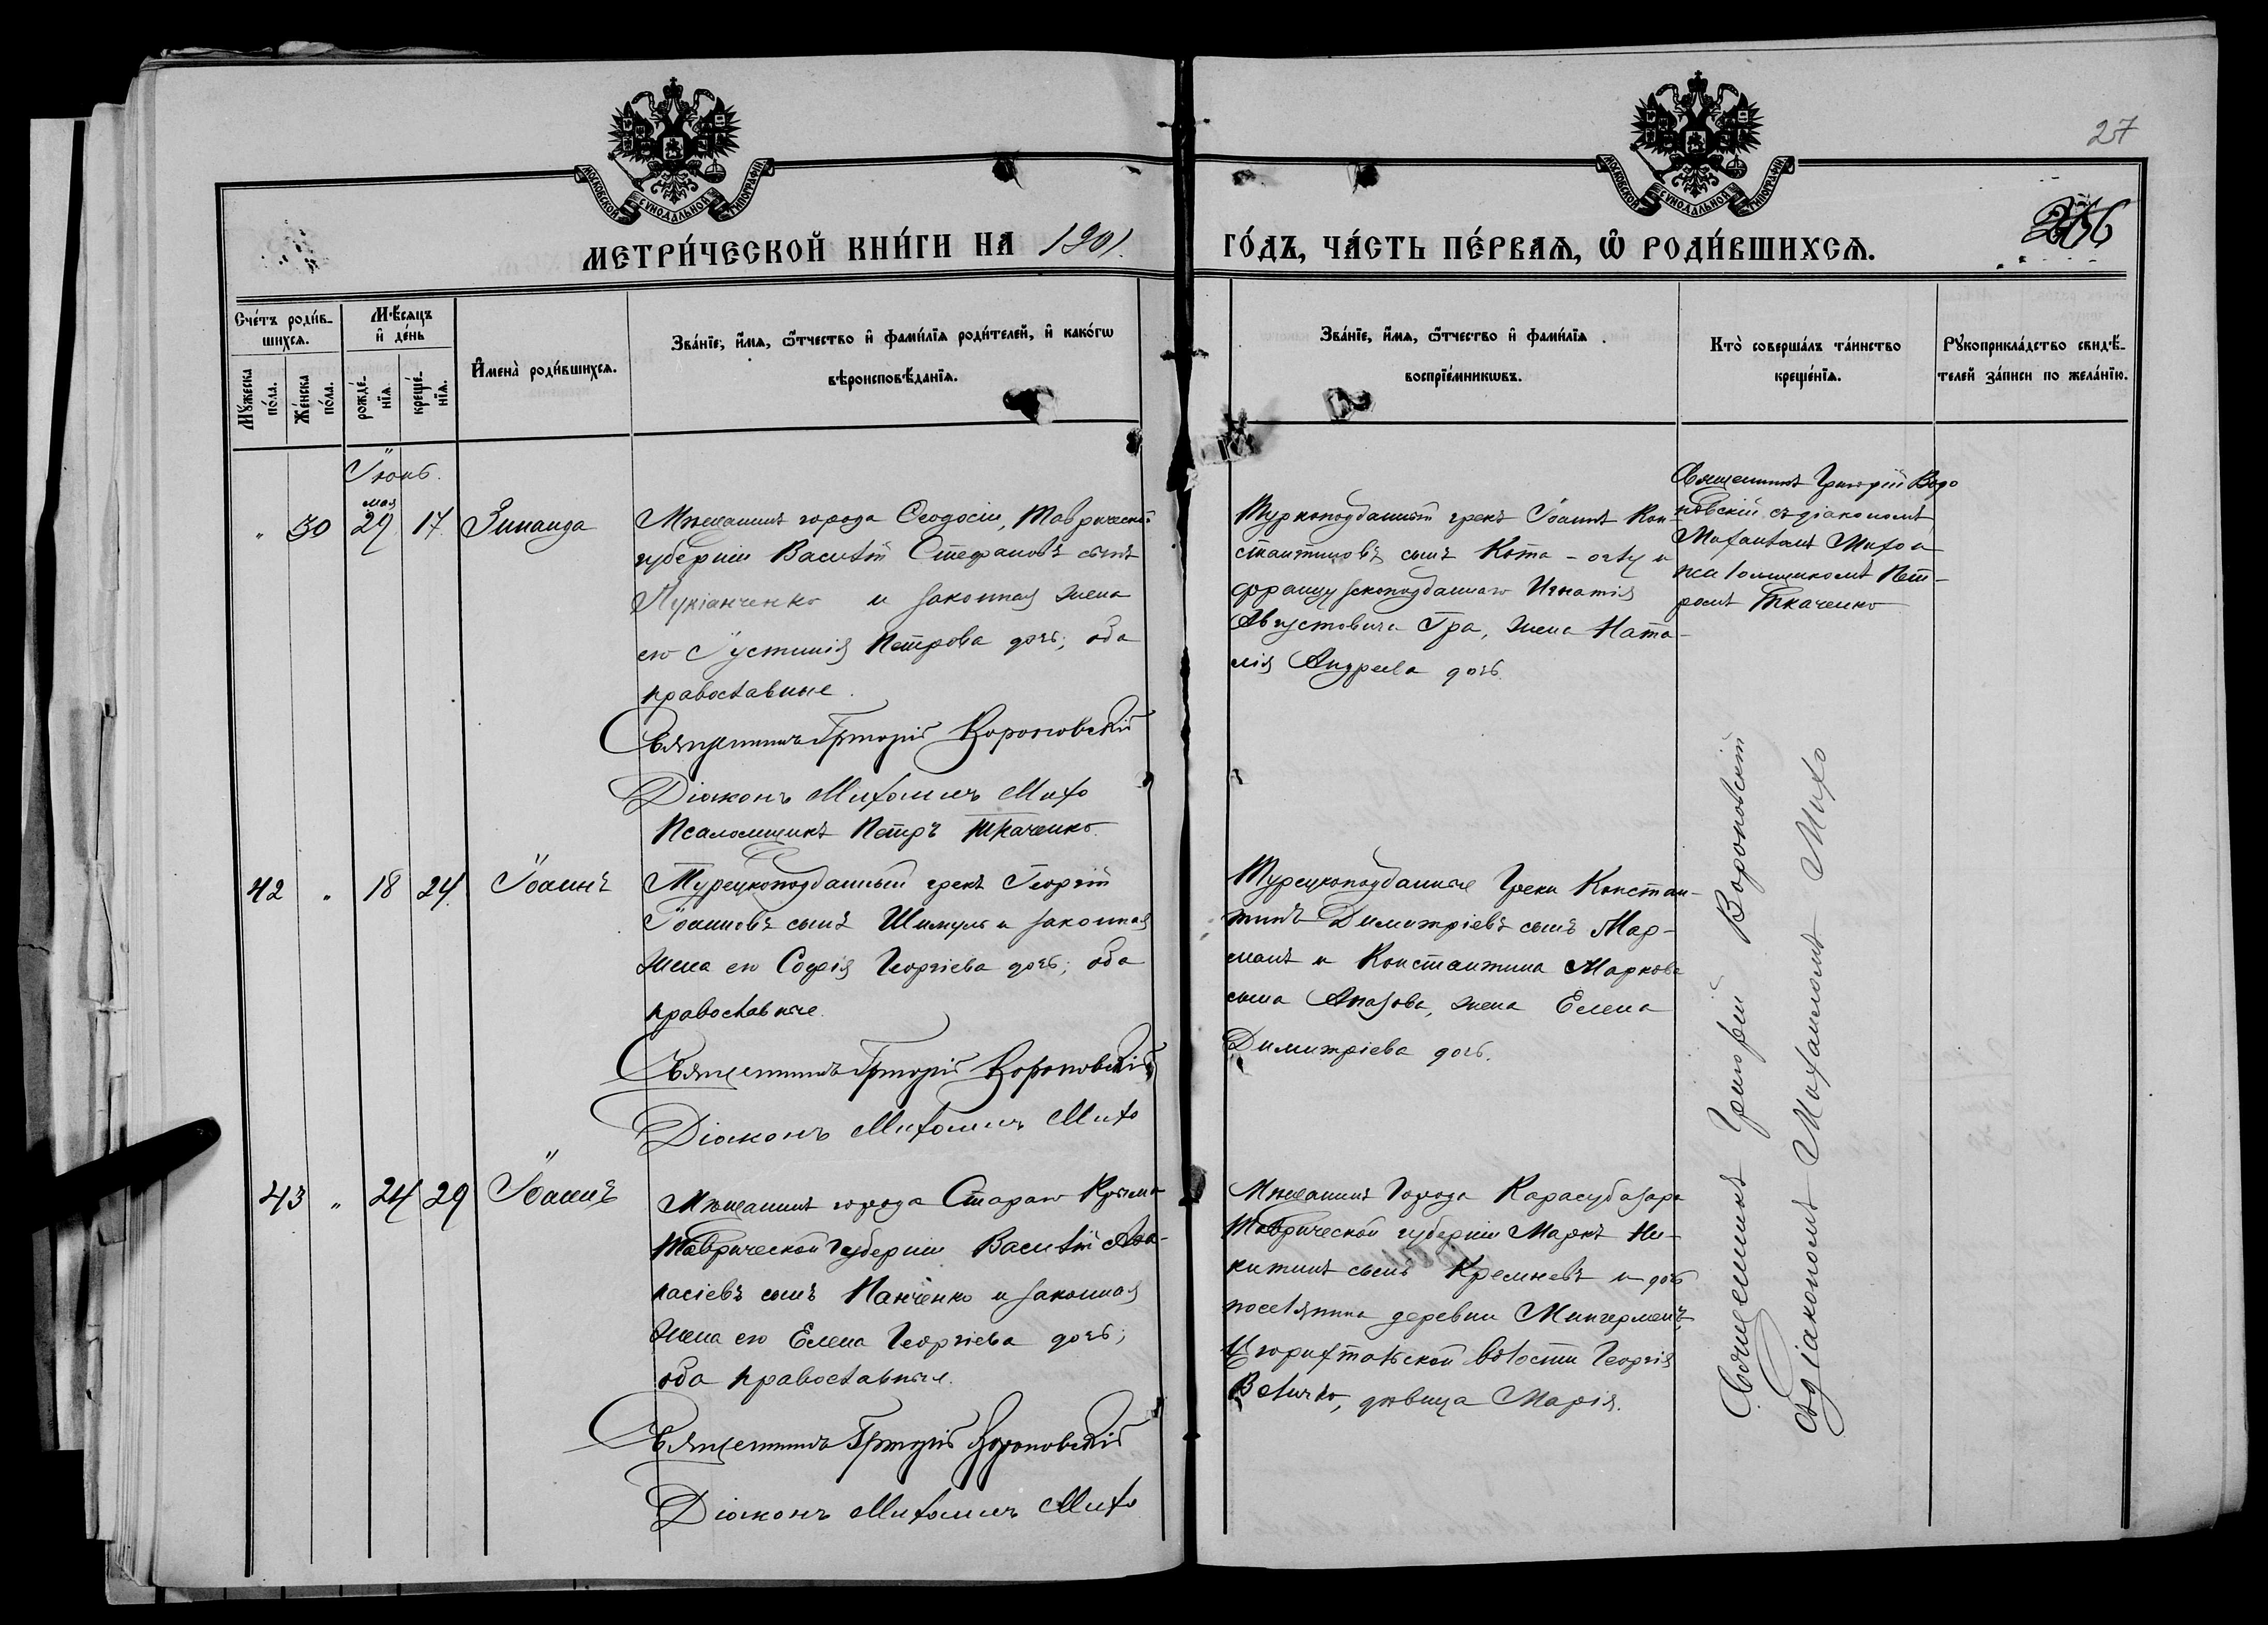 27
МОСКОВСКОЙ СѴНОДАЛЬНОЙ ТИПОГРАФІИ
МОСКОВСКОЙ СѴНОДАЛЬНОЙ ТИПОГРАФІИ
МЕТРИ́ЧЕСКОЙ КНИ́ГИ НА 1901.
ГО́ДЪ, ЧА́СТЬ ПЕ́РВАѦ, Ѽ РОДИ́ВШИХСѦ.
Сче́тъ роди́в-
шихсѧ.
Мꙋ́жеска
по́ла.
Же́нска
по́ла.
Мѣ́сѧцъ
и҆ де́нь
рожде́-
нїѧ.
креще́-
нїѧ.
И҆мена̀ роди́вшихсѧ.
Зва́нїе, и҆́мѧ, ѻ҆́тчество и҆ фами́лїѧ роди́телей, и҆ како́гѡ
вѣроисповѣ́данїѧ.
Зва́нїе, и҆́мѧ, ѻ҆́тчество и҆ фами́лїѧ
воспрїе́мникѡвъ.
Кто̀ соверша́лъ та́инство
креще́нїѧ.
Рꙋкоприкла́дство свидѣ́-
телей за́писи по жела́нїю.
Іюнь.
мая
" 30 29 17 Зинаида
Мѣщанинъ города Ѳеодосіи, Таврической
губерніи Василій Стефановъ сынъ
Лукіанченко и законная жена
его Іустинія Петрова дочь; оба
православные.
Священникъ Григорій Вороновскій
Діаконъ Михаилъ Михо
Псаломщикъ Петръ Ткаченко.
Іоаннъ Кон-
стантиновъ сынъ Кота-оглу и
французскоподданнаго Игнатія
Августовича Гра, жена Ната-
лія Андреева дочь.
Священникъ Григорій Воро
новскій съ діакономъ
Михаиломъ Михо и
псаломщикомъ Пет-
ромъ Ткаченко
42 " 18 24 Іоаннъ
Турецкоподданный грекъ Георгій
Іоанновъ сынъ и законная
жена его Софія Георгіева дочь; оба
православные.
Священникъ Григорій Вороновскій
Діаконъ Михаилъ Михо
Турецкоподданные Греки Констан-
тинъ Димитріевъ сынъ Мар-
и Константина Маркова
сына Апазова, жена Елена
Димитріева дочь.
43 " 24 29 Іоаннъ
Мѣщанинъ города Стараго Крыма
Таврической Губерніи Василій Аѳа-
насіевъ сынъ Панченко и законная
жена его Елена Георгіева дочь;
оба православные.
Священникъ Григорій Вороновскій
Діаконъ Михаилъ Михо
Мѣщанинъ Города Карасубазара
Таврической губерніи Маркъ Ни-
китинъ сынъ Кремневъ и дочь
поселянина деревни
волости Георгія
Величко, дѣвица Марія.
Священникъ Григорій Вороновскій
съ діакономъ Михаиломъ Михо